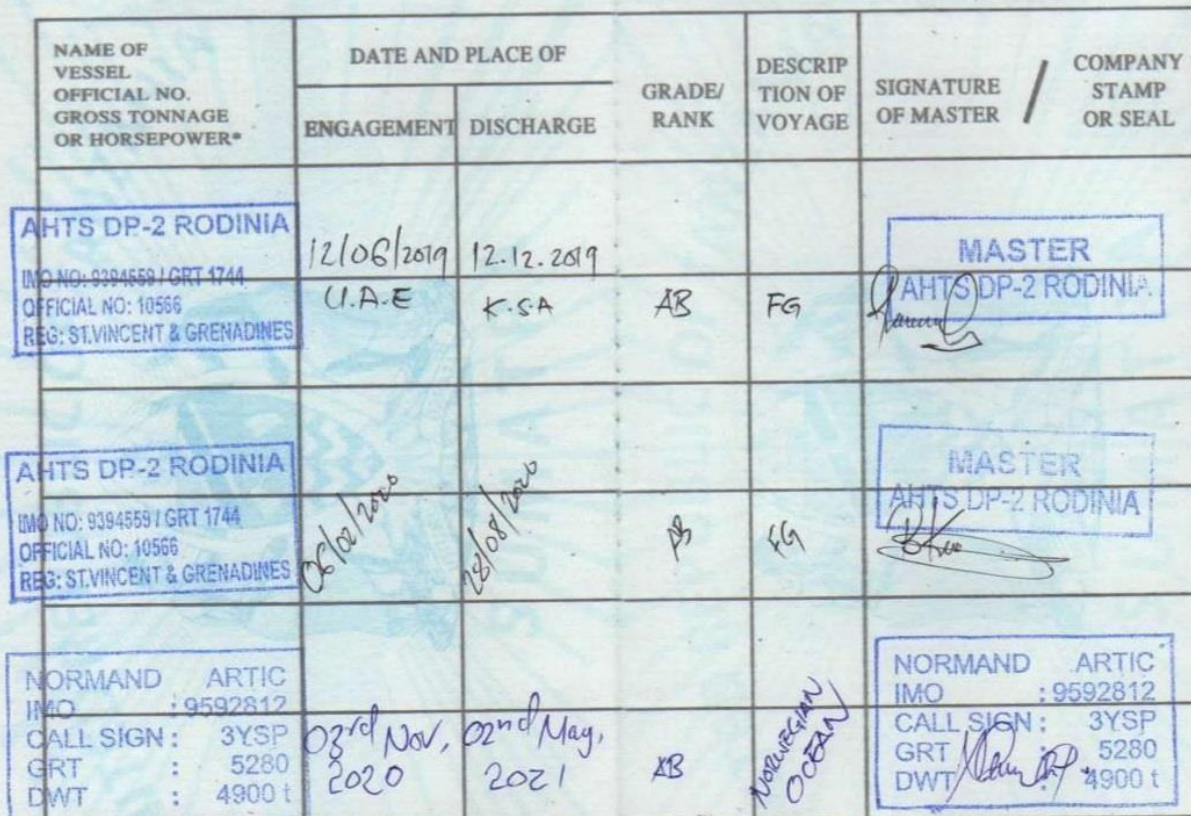 NAME OF
VESSEL
OFFICIAL NO.
GROSS TONNAGE
OR HORSEPOWER*
DATE AND PLACE OF
ENGAGEMENT
DISCHARGE
GRADE/
RANK
DESCRIP
TION OF
VOYAGE
SIGNATURE
OF MASTER
/
COMPANY
STAMP
OR SEAL
AHTS DP-2 RODINIA
IMO NO: 9394559 / GRT 1744
OFFICIAL NO: 10566
REG: ST.VINCENT & GRENADINES
12/06/2019
U.A.E
12.12.2019
K.S.A
AB
FG
MASTER
AHTS DP-2 RODINIA
AHTS DP-2 RODINIA
IMO NO: 9394559 / GRT 1744
OFFICIAL NO: 10566
REG: ST.VINCENT & GRENADINES
06/02/2020
28/08/2020
AB
FG
MASTER
AHTS DP-2 RODINIA
NORMAND ARTIC
IMO : 9592812
CALL SIGN : 3YSP
GRT : 5280
DWT : 4900 t
03rd Nov,
2020
02nd May,
2021
AB
NORWEGIAN
OCEAN
NORMAND ARTIC
IMO : 9592812
CALL SIGN : 3YSP
GRT : 5280
DWT : 4900 t